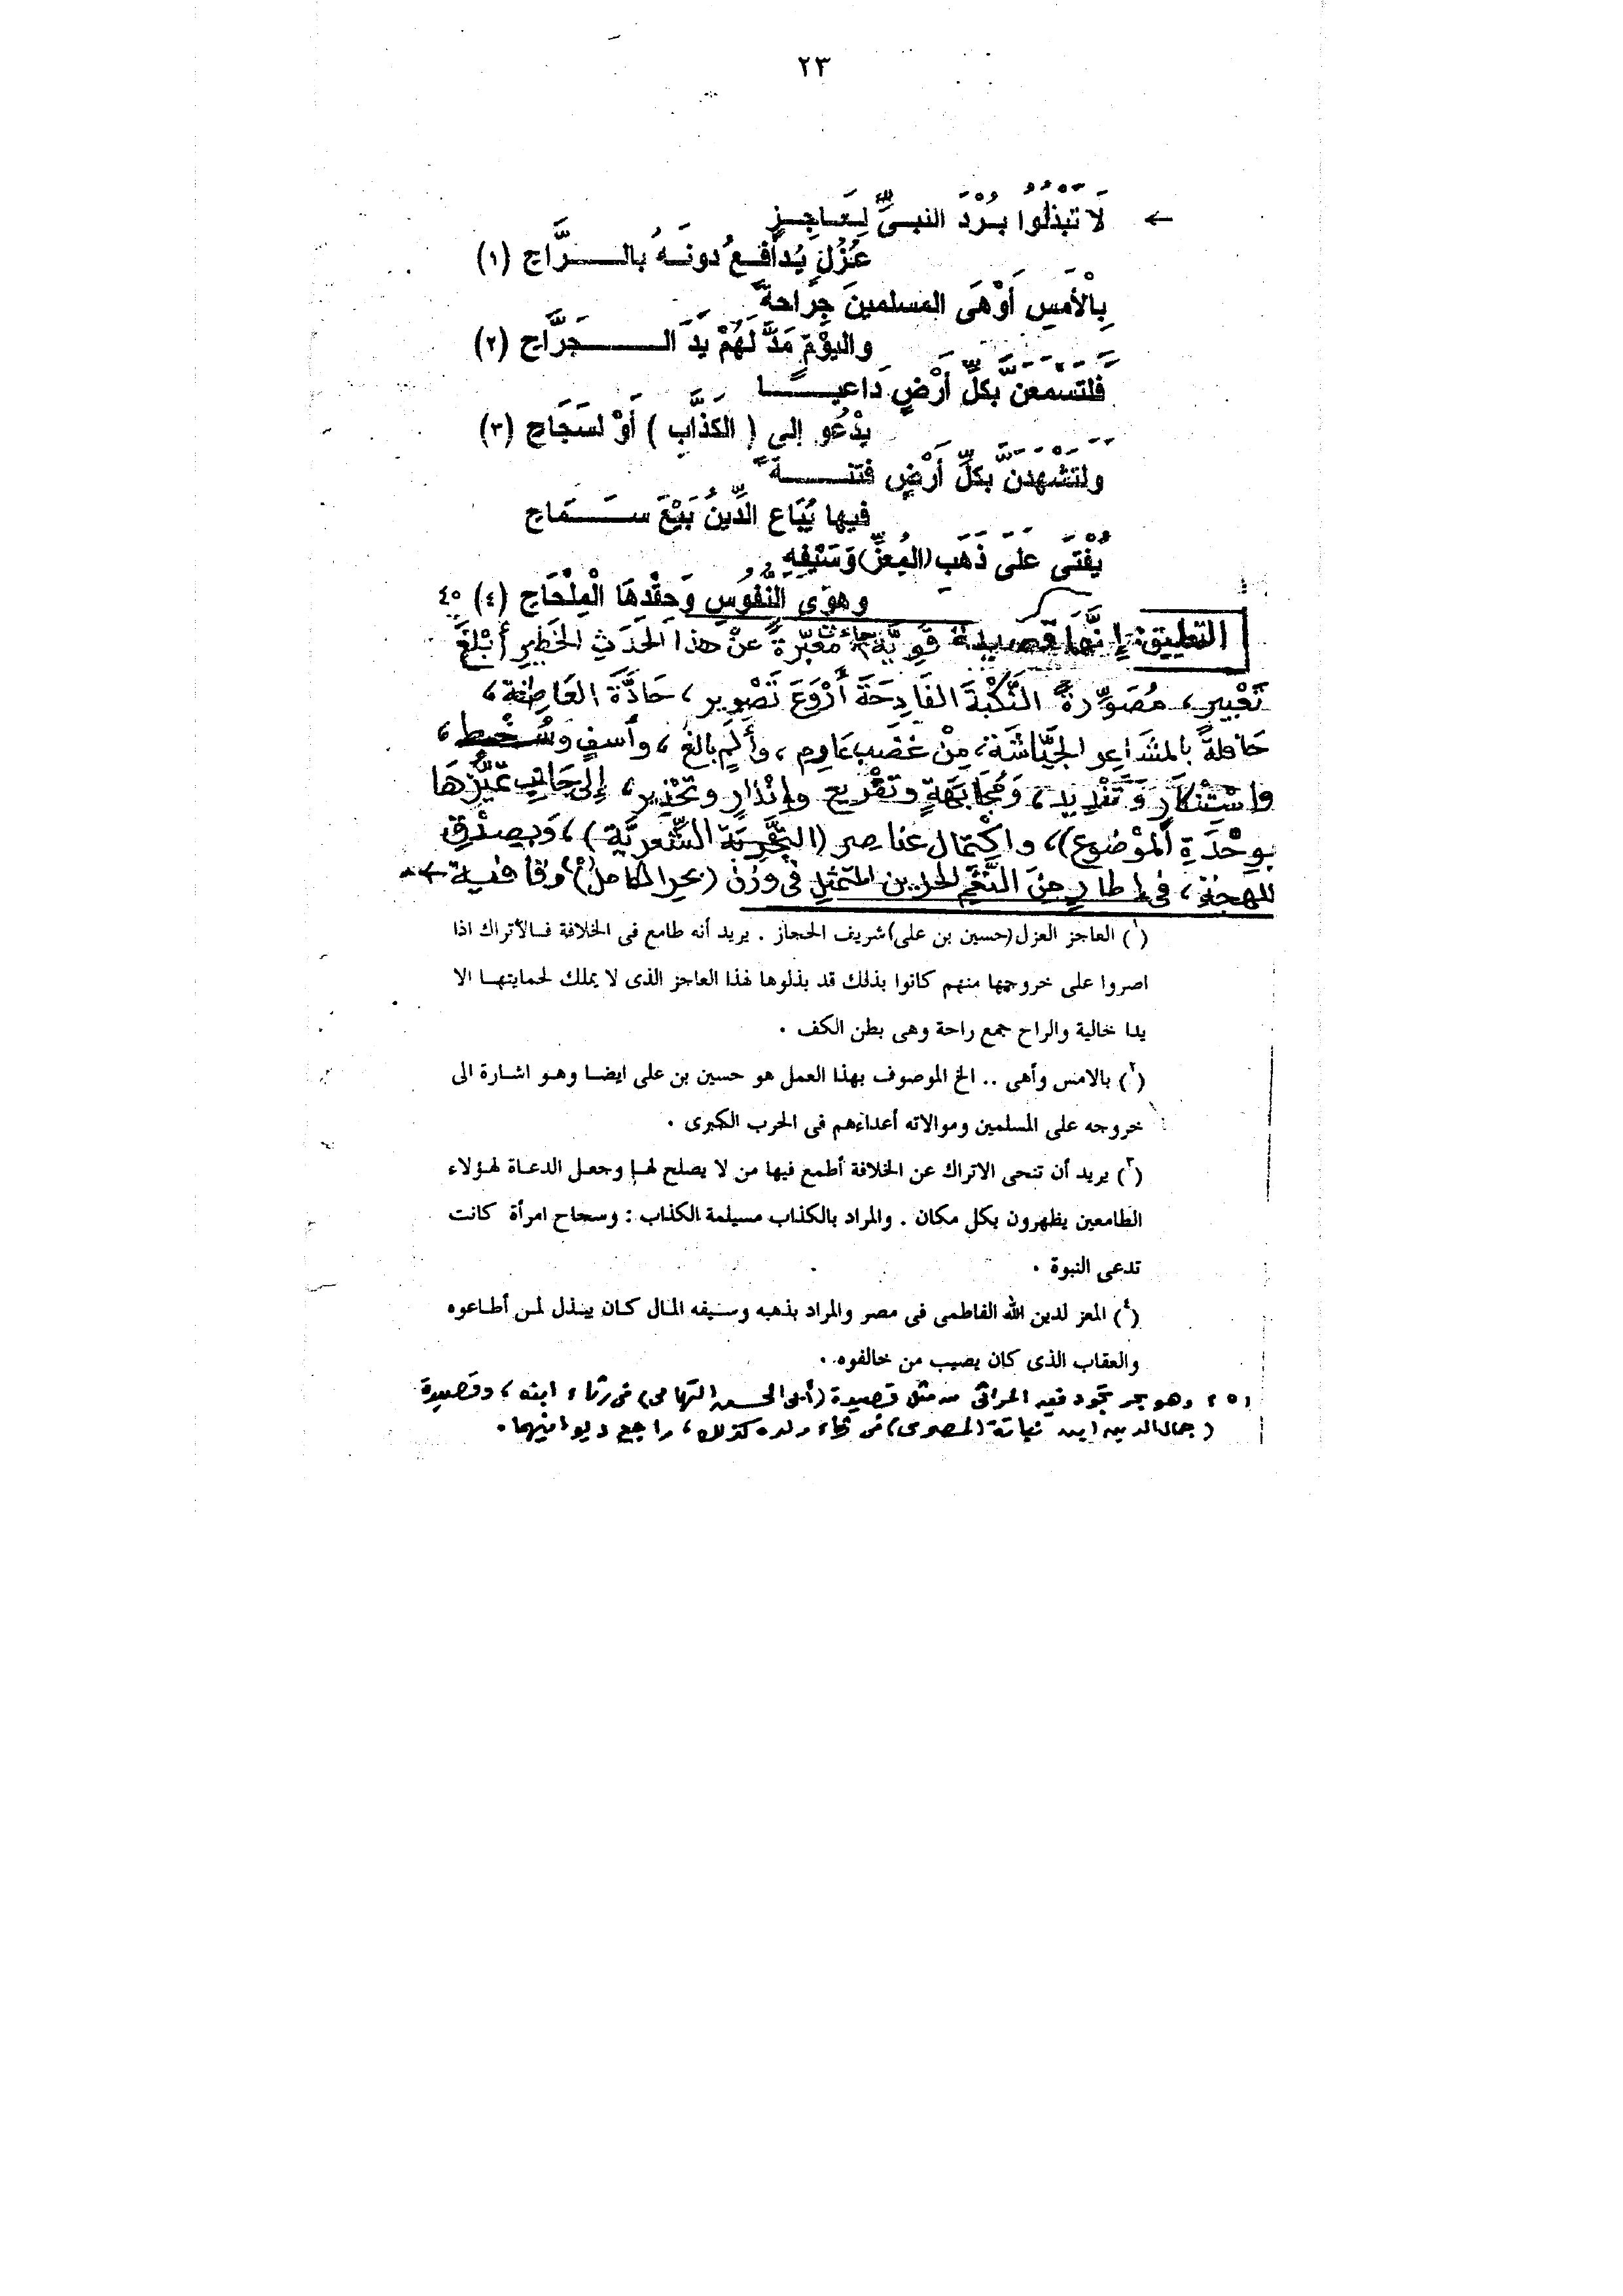 ٢٣
← لَا تَبْذُلُوا بُرْدَ النبىِّ لِعَاجِزٍ
عُزُلٍ يُدافِعُ دونَهُ بالرَّاحِ (١)
بِالْأمسِ أوْهَى المسلمينَ جِراحةً
واليوْمَ مَدَّ لَهُمْ يَدَ الجَرَّاحِ (٢)
فَلَتَسْمَعَنَّ بكلِّ أرْضٍ دَاعيًا
يدْعُو إلى ( الكَذَّابِ ) أوْ لسَجَاحِ (٣)
ولَتَشْهَدَنَّ بكلِّ أرْضٍ فتنةً
فيها يُبَاع الدِّينُ بَيْعَ سَمَاحِ
يُفْتَى عَلَى ذَهَبِ (المُعِزِّ) وَسَيْفِهِ
وهوَى النُّفُوسِ وَحِقْدِهَا الْمِلْحَاحِ (٤) ٤٥
التعليق: إنَّهَا قصيدة قَوِيَّة جاءت معبِّرةً عنْ هذا الحَدَثِ الخَطيرِ أبْلَغَ
تَعْبيرٍ، مُصَوِّرةً النَّكْبَةَ الفَادِحَةَ أرْوَعَ تَصْوِيرٍ، حَادَّةَ العَاطِفة،
حَافلةً بالمشَاعِر الجيَّاشَة، مِنْ غَضَبٍ عَارِمٍ، وألَمٍ بالغ، وأسفٍ وسُخْطٍ،
واسْتِنْكَارٍ وَتَنْدِيدٍ، وَمُجَابَهَةٍ وتَقْريعٍ وإنْذارٍ وتَحْذيرٍ، إلى جَانِبِ تَمَيُّزِهَا
بوِحْدَةِ (المَوْضوع)، واكْتِمَال عَناصِر (التجْرِبَة الشِّعْريَّة)، وَبِصِدْقِ
اللهجة، فى إطارٍ مِنَ النَّغَم الحزين المتمثِّلِ فى وزن (بحر الكامل)(٥) وقافية ←
(١) العاجز العزل (حسين بن على) شريف الحجاز . يريد أنه طامع فى الخلافة فـالأتراك اذا
اصروا على خروجها منهم كانوا بذلك قد بذلوها لهذا العاجز الذى لا يملك لحمايتهـا الا
يدا خالية والراح جمع راحة وهى بطن الكف .
(٢) بالامس وأهى .. الخ الموصوف بهذا العمل هو حسين بن على ايضـا وهـو اشـارة الى
خروجه على المسلمين وموالاته أعداءهم فى الحرب الكبرى .
(٣) يريد أن تنحى الاتراك عن الخلافة أطمع فيها من لا يصلح لهـا وجعـل الدعـاة لهـؤلاء
الطامعين يظهرون بكل مكان . والمراد بالكذاب مسيلمة الكذاب : وسجاح امرأة كانت
تدعى النبوة .
(٤) المعز لدين الله الفاطمى فى مصر والمراد بذهبه وسـيفه المـال كـان يبـذل لمـن أطـاعوه
والعقاب الذى كان يصيب من خالفوه .
(٥) وهو بحر تجود فيه المراثى من مثل قصيدة (أبى الحسن التهامى) فى رثاء ابنه، وقصيدة
(جمال الدين ابن نباتة المصرى) فى رثاء ولده كذلك، راجع ديوانيهما.